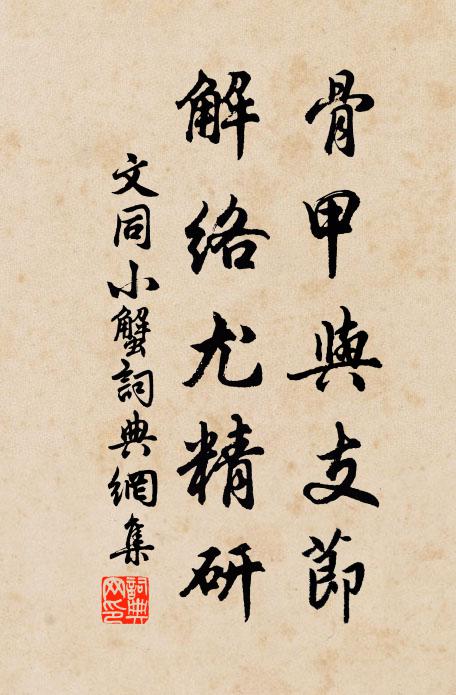 骨甲與支節
解络尤精研
文同小蟹詞典網集
詞典網印